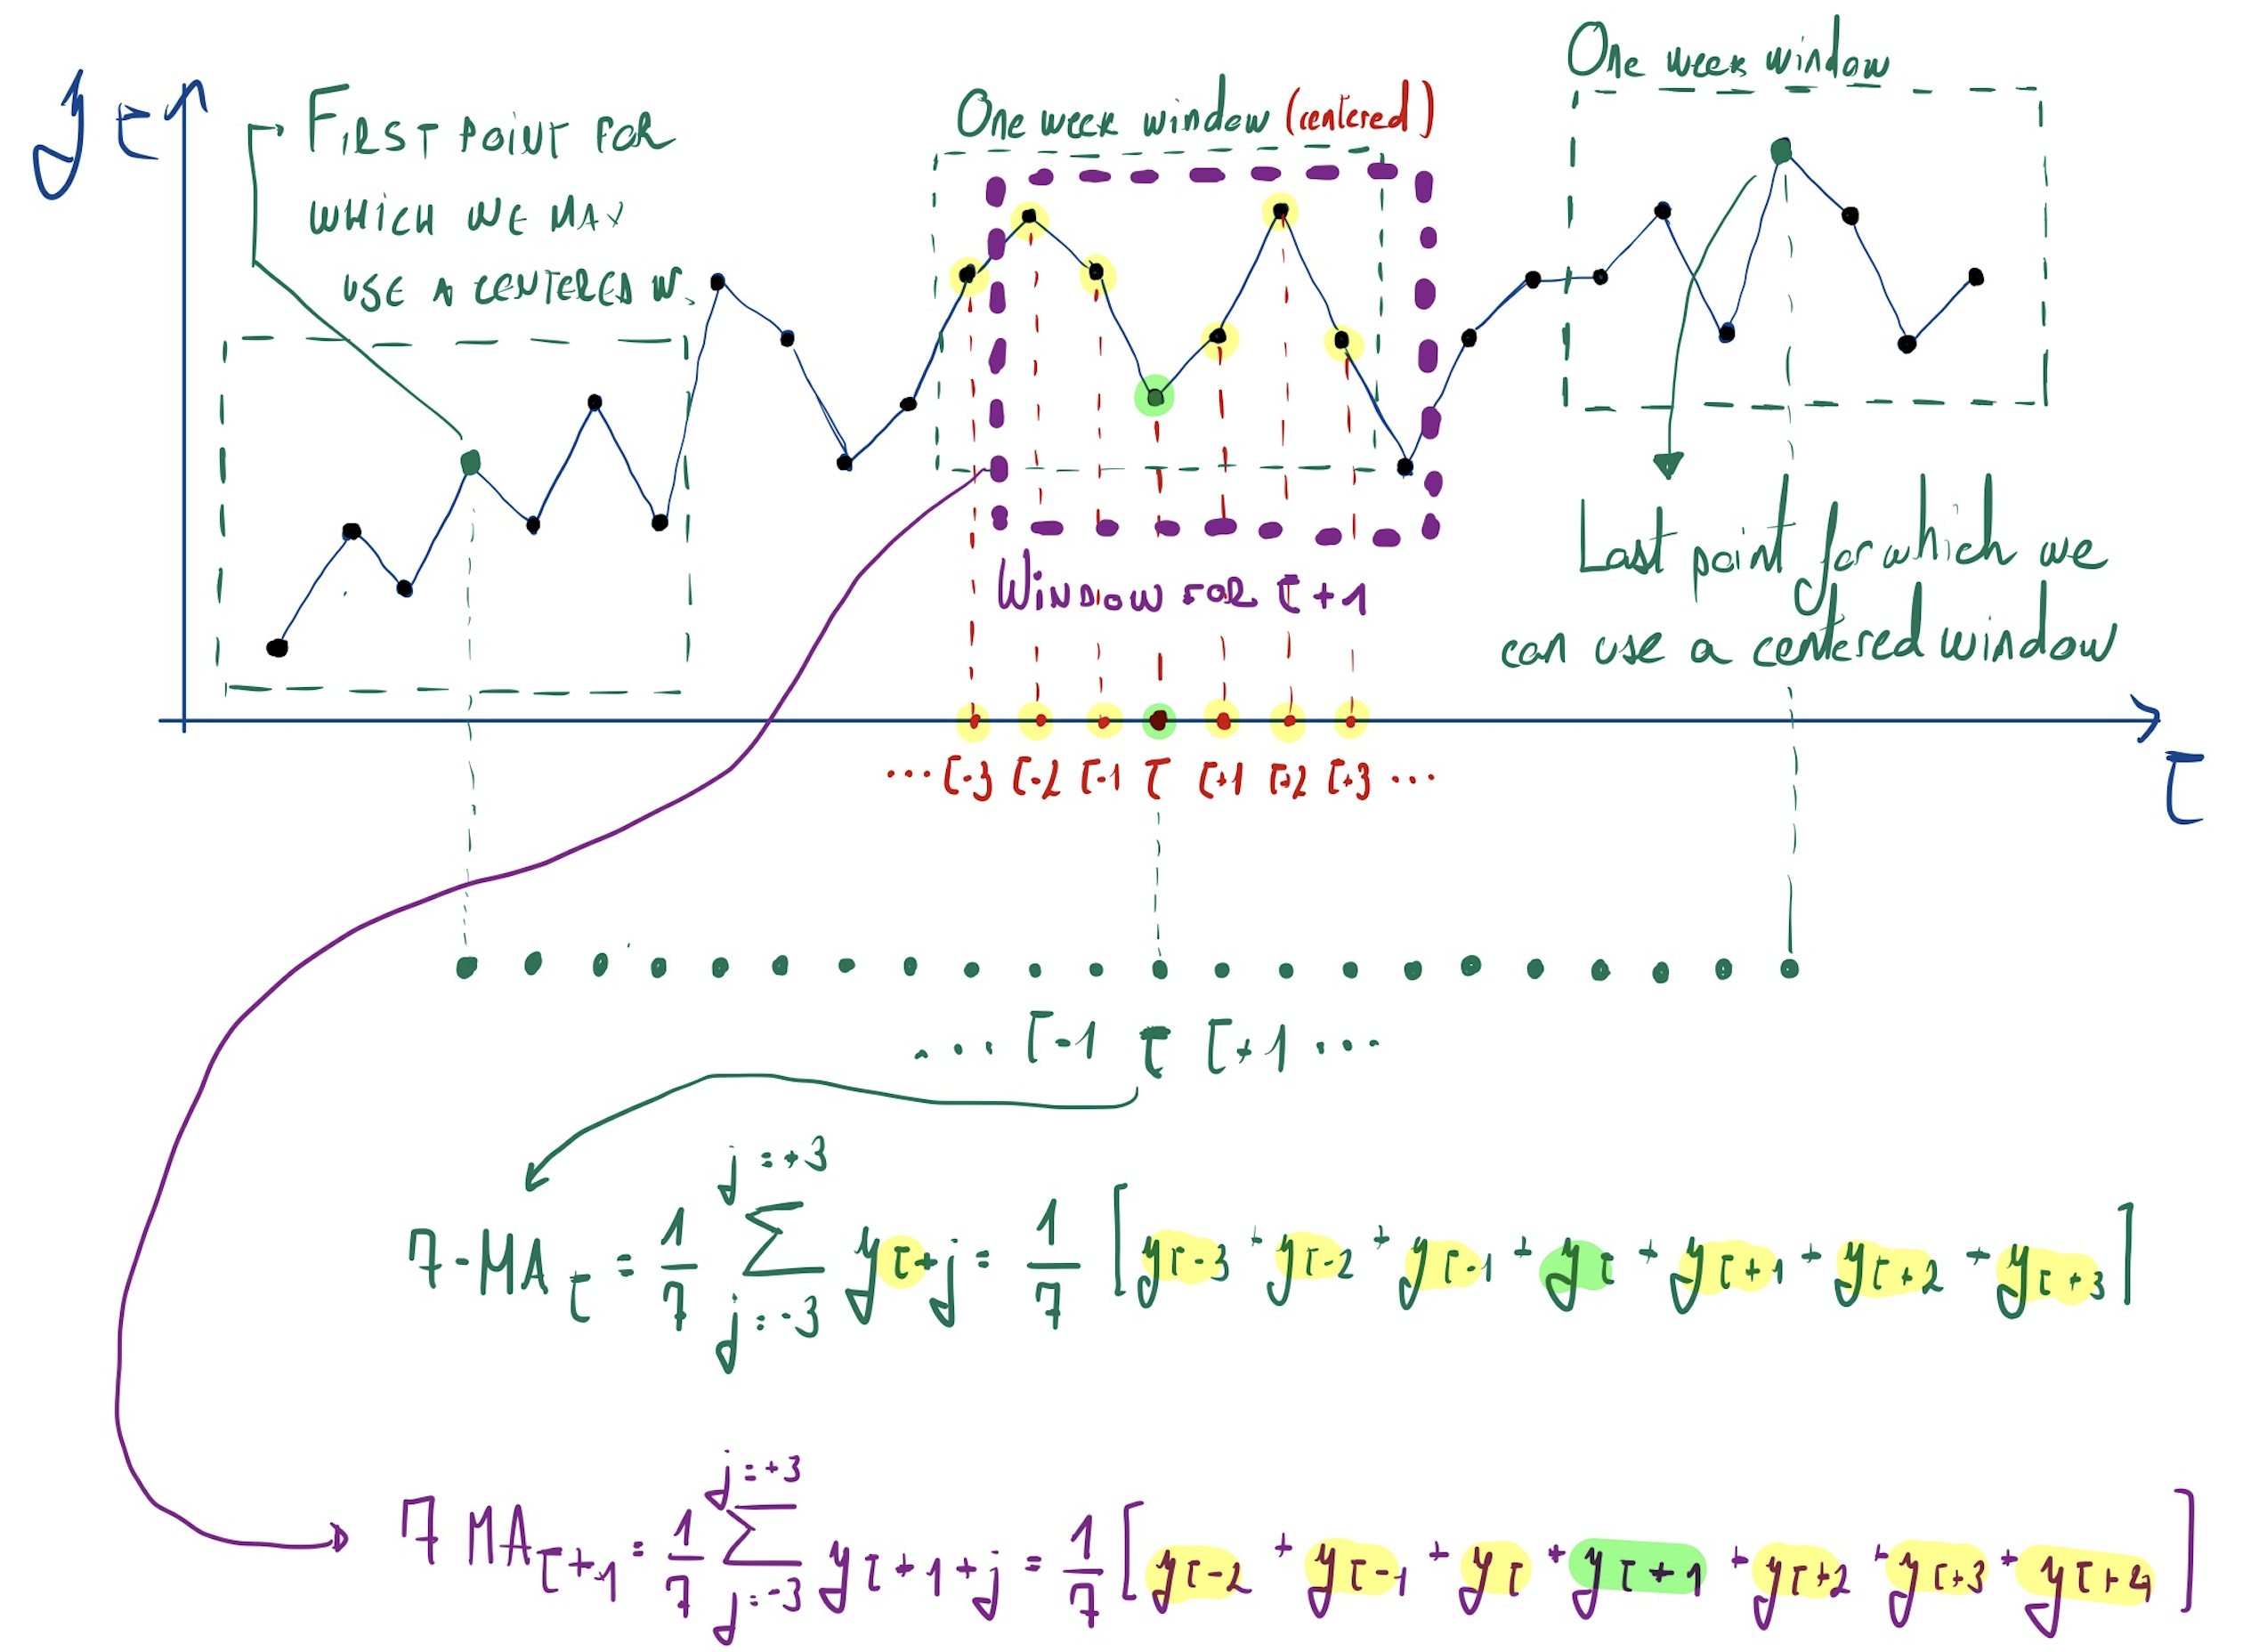 y t
FIRST POINT FOR
WHICH WE MAY
USE A CENTERED W.
One week window (centered)
One week window
WINDOW FOR t+1
Last point for which we
can use a centered window
... t-3 t-2 t-1 t t+1 t+2 t+3 ...
t
... t-1 t t+1 ...
j=+3
7-MA t = 1/7 ∑ y t+j = 1/7 [y t-3 + y t-2 + y t-1 + y t + y t+1 + y t+2 + y t+3]
j=-3
j=+3
7 MA t+1 = 1/7 ∑ y t+1+j = 1/7 [y t-2 + y t-1 + y t + y t+1 + y t+2 + y t+3 + y t+4]
j=-3